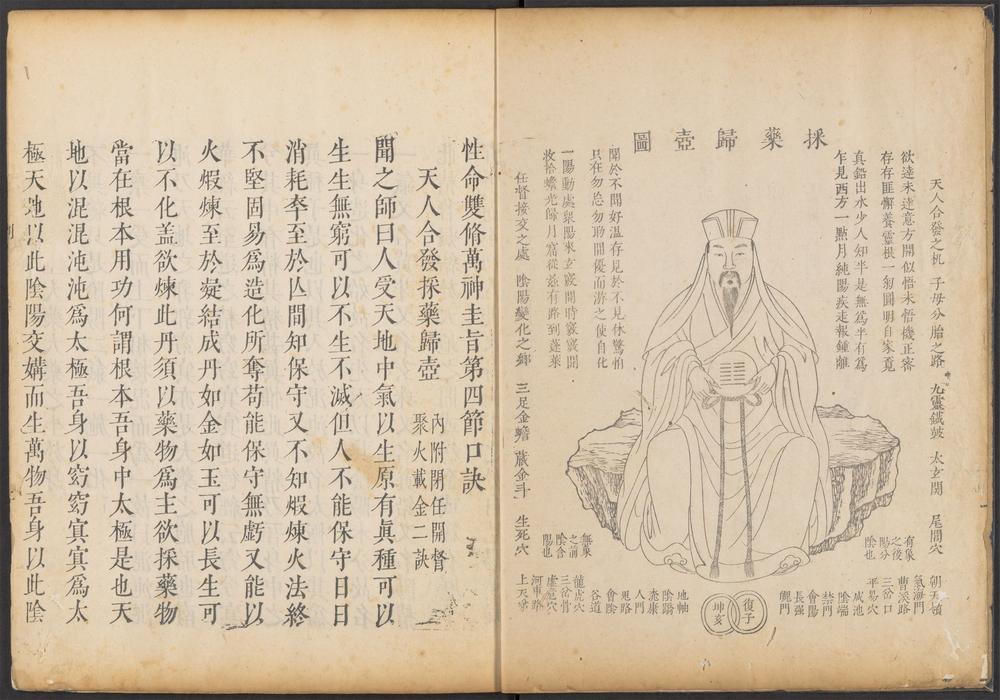 採藥歸壺圖
天人合發之机 子母分胎之路 九靈鐵皷 太玄関 尾閭穴
欲達未達意方開似悟未悟機正密
存存匪懈養靈根一匊圓明自家覔
真鉛出水少人知半是無爲半有爲
乍見西方一點月純陽疾走報鍾離
聞於不聞好溫存見於不見休驚怕
只在勿忘勿助間優而游之使自化
一陽動處衆陽來玄竅開時竅竅開
收拾蟾光歸月窟從兹有路到蓬萊
任督接交之處 陰陽變化之鄉 三足金蟾 藏金斗 生死穴
有象
之後
陽分
陰也
朝天嶺
氣海門
曹溪路
三岔口
平易穴
咸池
陰端
禁門
會陽
長强
魄門
復子
坤亥
地軸
陰蹻
桃康
人門
鬼路
會陰
谷道
龍虎穴
三岔骨
虛危穴
河車路
上天梯
無象
之前
陰含
陽也
性命雙脩萬神圭旨第四節口訣
天人合發採藥歸壺 內附閉任開督
聚火載金二訣
聞之師曰人受天地中氣以生原有眞種可以
生生無窮可以不生不滅但人不能保守日日
消耗卒至於亾間知保守又不知煆煉火法終
不堅固易爲造化所奪苟能保守無虧又能以
火煆煉至於凝結成丹如金如玉可以長生可
以不化盖欲煉此丹須以藥物爲主欲採藥物
當在根本用功何謂根本吾身中太極是也天
地以混混沌沌爲太極吾身以窈窈冥冥爲太
極天地以此陰陽交媾而生萬物吾身以此陰